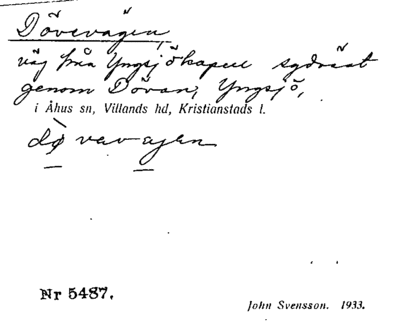 Dövevägen,
väg från Yngsjökapell sydväst
genom Dövan, Yngsjö,
i Åhus sn, Villands hd, Kristianstads l.
Nr 5487.
John Svensson. 1933.